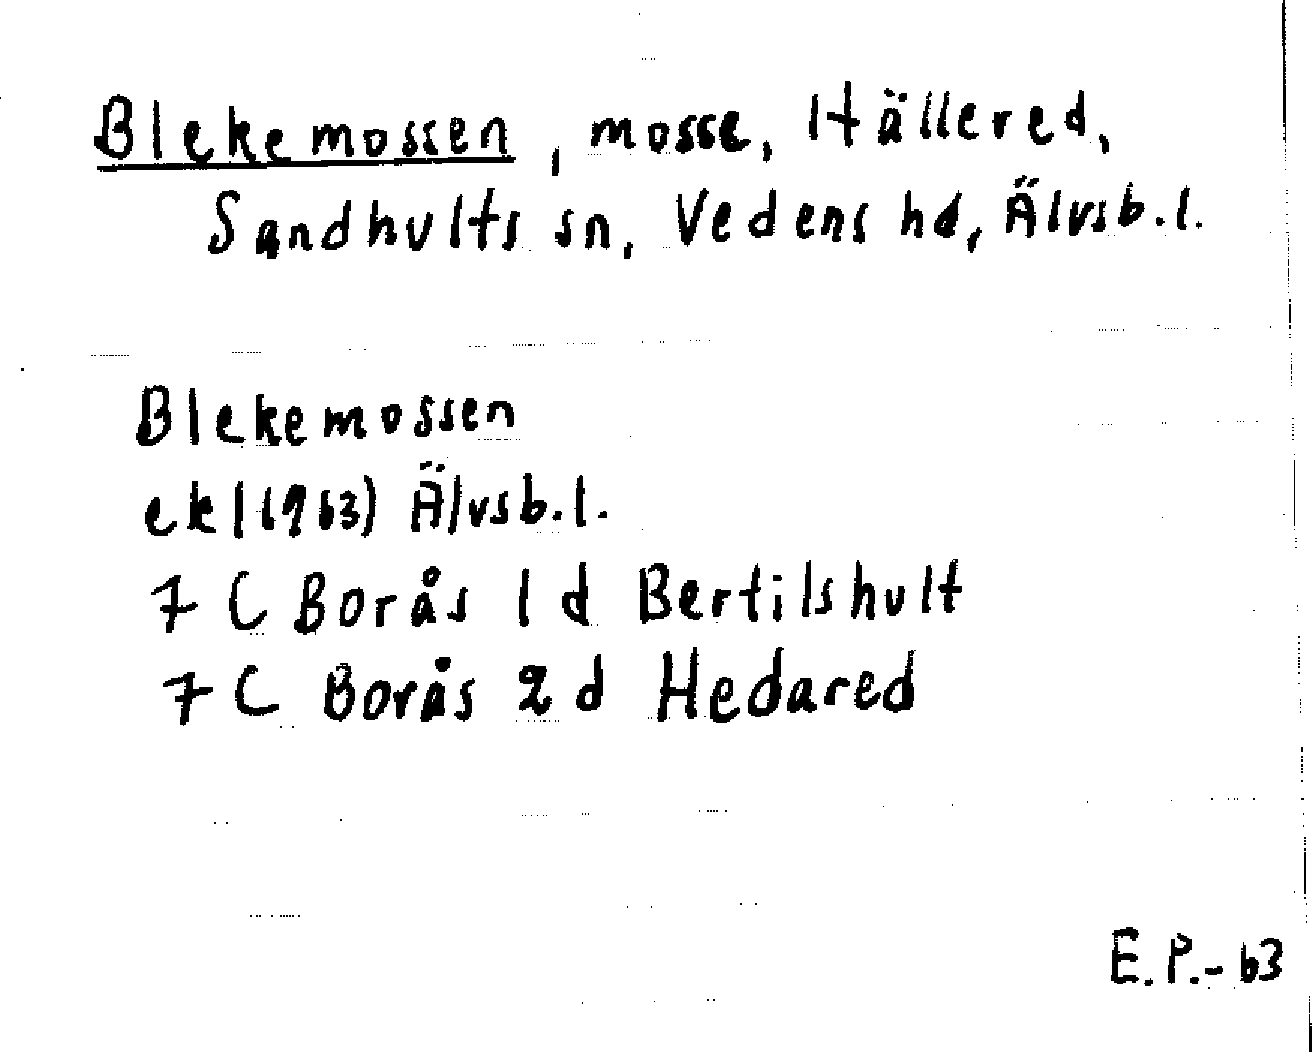 Blekemossen, mosse, Hällered,
Sandhults sn, Vedens hd, Älvsb.l.
Blekemossen
ekl (1963) Älvsb.l.
7 C Borås 1 d Bertilshult
7 C Borås 2 d Hedared
E.P.-63